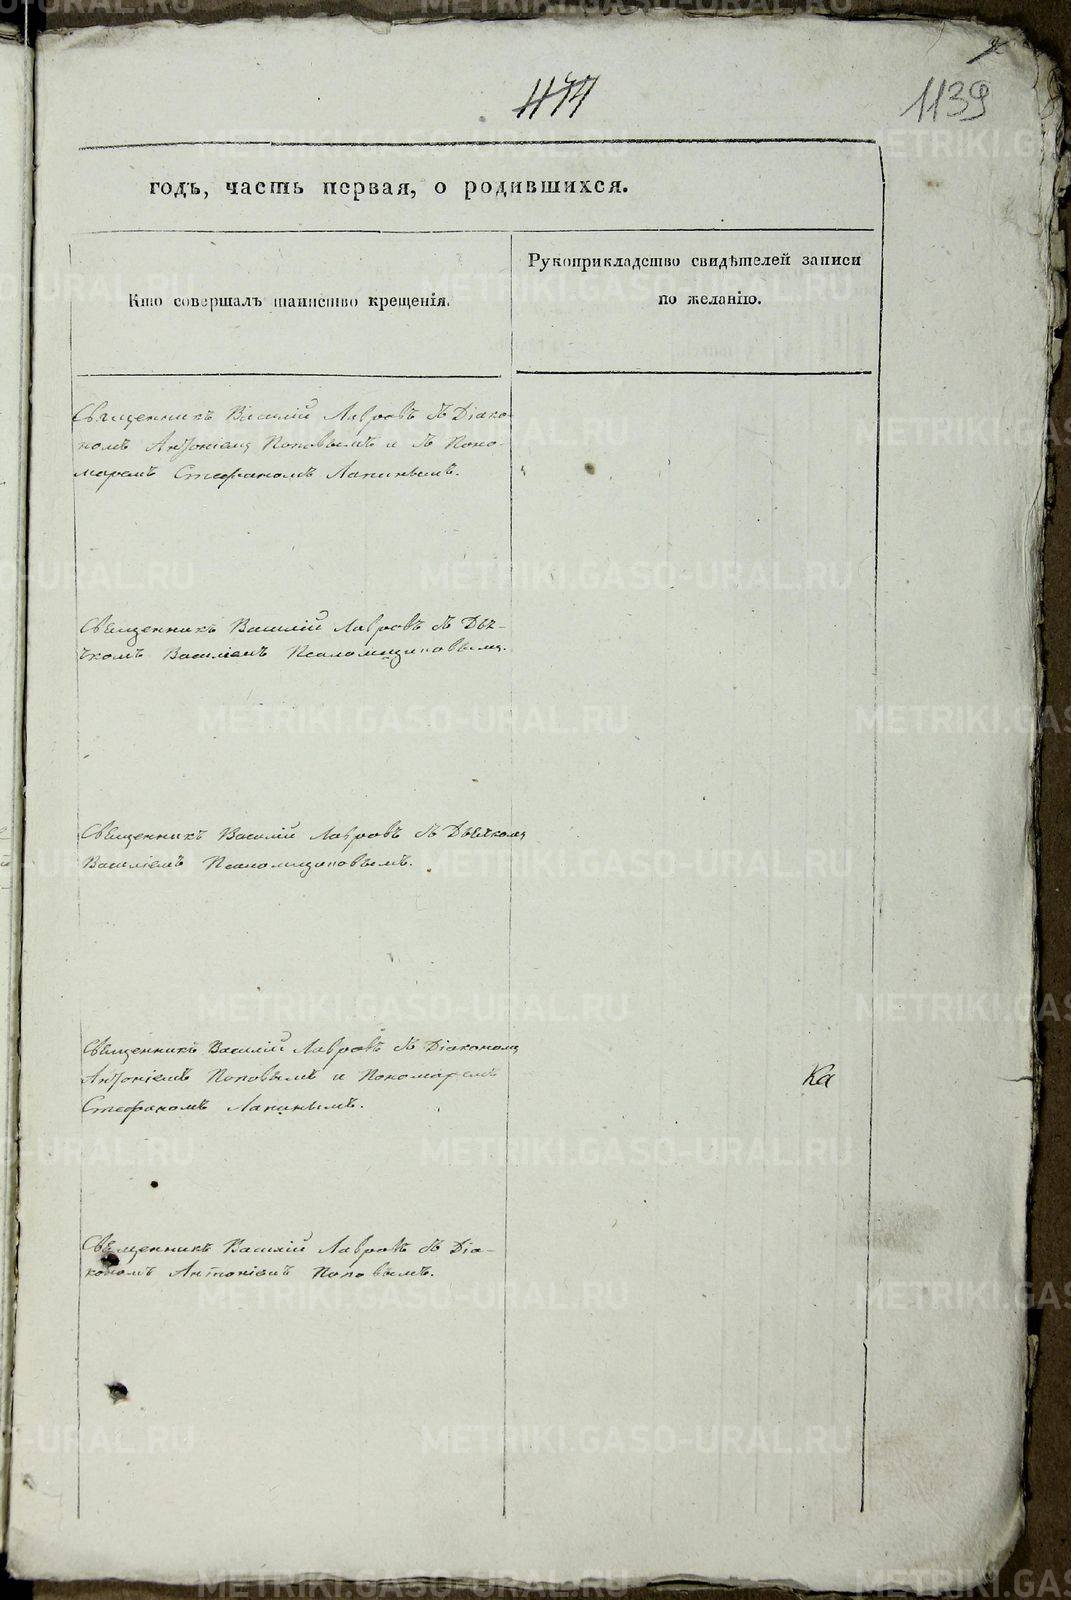 1139
годъ, часть первая, о родившихся.
Кто совершалъ таинство крещенія.
Рукоприкладство свидѣтелей записи
по желанію.
Священникъ Василій Лавровъ съ Діако-
номъ Антоніемъ Поповымъ и съ Поно-
маремъ Стефаномъ Лапинымъ.
Священникъ Василій Лавровъ съ Дья-
чкомъ Василіемъ Псаломщиковымъ.
Священникъ Василій Лавровъ съ Дьячкомъ
Василіемъ Псаломщиковымъ.
Священникъ Василій Лавровъ съ Діакономъ
Антоніемъ Поповымъ и Пономаремъ
Стефаномъ Лапинымъ.
Ка
Священникъ Василій Лавровъ съ Діа-
кономъ Антоніемъ Поповымъ.
METRIKI.GASO-URAL.RU